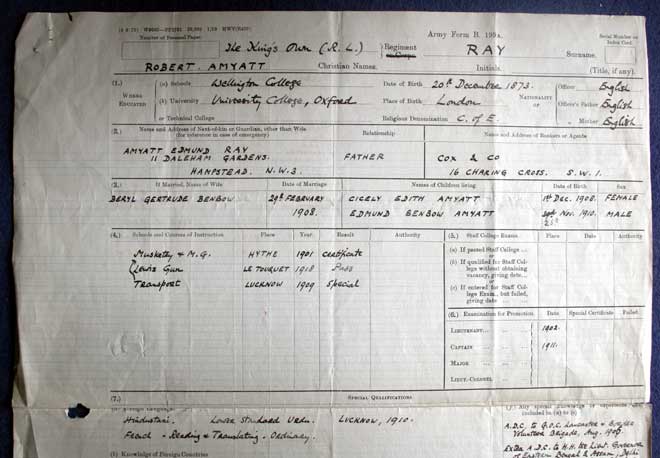 Army Form B. 199A.
Number of Personal Paper
The King's Own (R. L.) Regiment RAY Surname.
or Corps
Serial Number on Index Card.
ROBERT AMYATT Christian Names. Initials. (Title, if any).
(1.) WHERE EDUCATED
(a) Schools Wellington College Date of Birth 20th December 1873. NATIONALITY OF Officer English
(b) University University College, Oxford Place of Birth London Officer's Father English
or Technical College Religious Denomination C. of E. Mother English
(2.) Name and Address of Next-of-kin or Guardian, other than Wife (for reference in case of emergency) Relationship Name and Address of Bankers or Agents
AMYATT EDMUND RAY
11 DALEHAM GARDENS. FATHER COX & CO
HAMPSTEAD. N.W.3. 16 CHARING CROSS. S.W.1.
(3.) If Married, Name of Wife Date of Marriage Names of Children living Date of Birth Sex
BERYL GERTRUDE BENBOW 29th FEBRUARY CICELY EDITH AMYATT 1st Dec. 1908. FEMALE
1908. EDMUND BENBOW AMYATT Nov. 1910. MALE
(4.) Schools and Courses of Instruction Place Year Result Authority
Musketry & M.G. HYTHE 1901 certificate
Lewis Gun LE TOUQUET 1918 Pass
Transport LUCKNOW 1909 Special
(5.) Staff College Exam. Date Authority
(a) If passed Staff College
or
(b) If qualified for Staff College without obtaining vacancy, giving date
or
(c) If entered for Staff College Exam., but failed, giving date
(6.) Examination for Promotion Date Special Certificate Failed
LIEUTENANT 1902.
CAPTAIN 1911.
MAJOR
LIEUT.-COLONEL
(7.) SPECIAL QUALIFICATIONS
(a) Foreign Language
Hindustani. Lower Standard Urdu. LUCKNOW, 1910.
French - Reading & Translating - Ordinary.
(b) Knowledge of Foreign Countries
(f.) Any special knowledge or experience not included in (a) to (e)
A.D.C. to G.O.C. Lancaster & Border
Volunteer Brigade, Aug.
Extra A.D.C. to H.H. the Lieut. Governor
of Eastern Bengal & Assam, Delhi